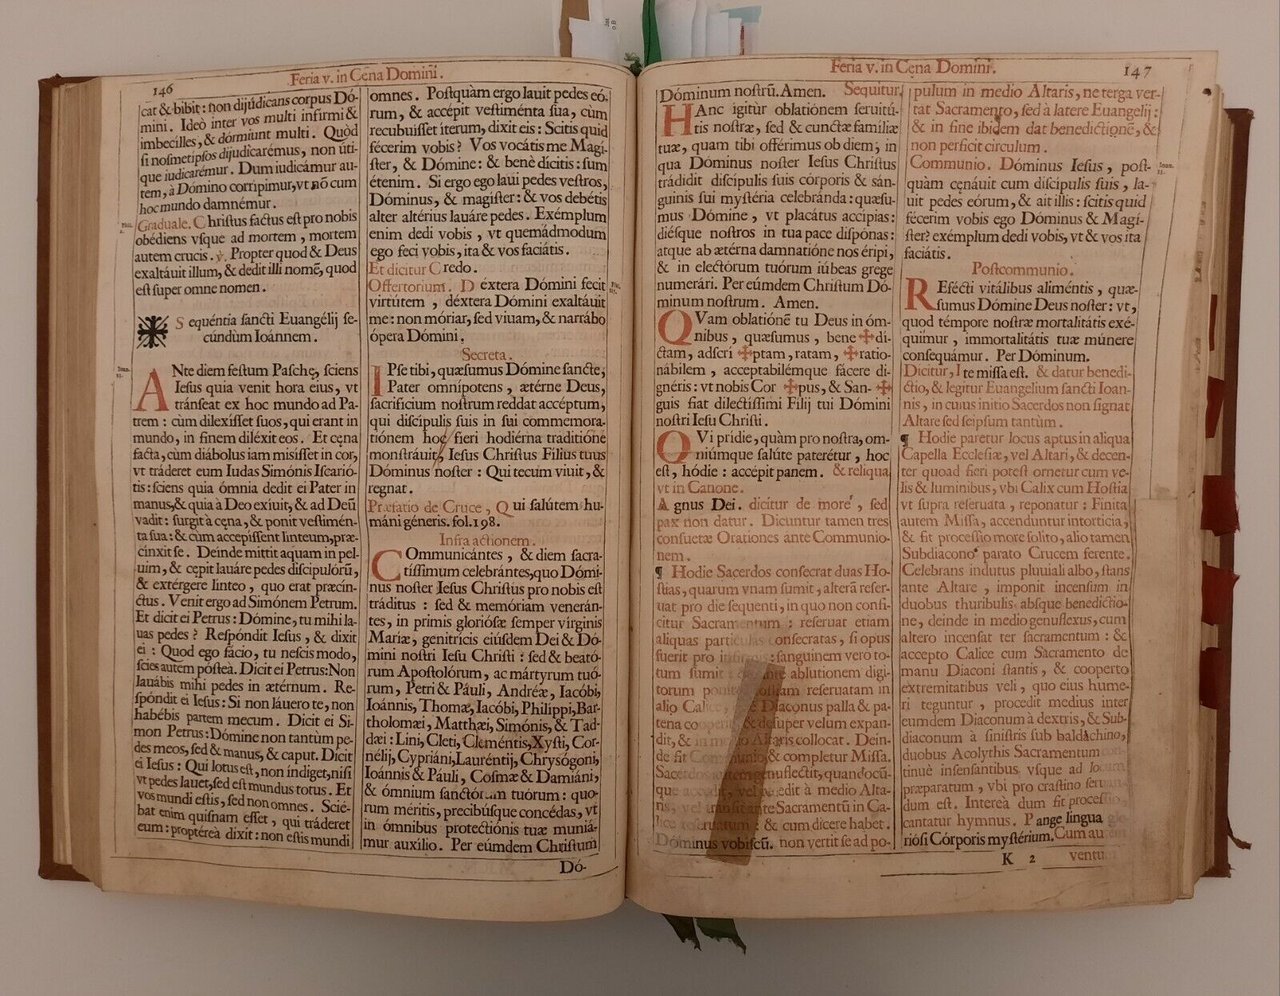 146
Feria v. in Cęna Domini.
cat & bibit: non dijúdicans corpus Dó-
mini. Ideò inter vos multi infirmi &
imbecilles, & dórmiunt multi. Quòd
si nosmetipsos dijudicarémus, non úti-
que iudicarémur. Dum iudicámur au-
tem, à Dómino corrípimur, vt nõ cum
hoc mundo damnémur.
Graduale. Christus factus est pro nobis
obédiens vsque ad mortem, mortem
autem crucis. ℣. Propter quod & Deus
exaltáuit illum, & dedit illi nomẽ, quod
est super omne nomen.
Sequéntia sancti Euangélij se-
cúndùm Ioánnem.
ANte diem festum Paschę, sciens
Iesus quia venit hora eius, vt
tránseat ex hoc mundo ad Pa-
trem: cùm dilexísset suos, qui erant in
mundo, in finem diléxit eos. Et cęna
facta, cùm diábolus iam misísset in cor,
vt tráderet eum Iudas Simónis Iscarió-
tis: sciens quia ómnia dedit ei Pater in
manus, & quia à Deo exíuit, & ad Deũ
vadit: surgit à cęna, & ponit vestimén-
ta sua: & cùm accepísset línteum, præ-
cínxit se. Deinde mittit aquam in pel-
uim, & cępit lauáre pedes discipulórũ,
& extérgere línteo, quo erat præcín-
ctus. Venit ergo ad Simónem Petrum.
Et dicit ei Petrus: Dómine, tu mihi la-
uas pedes? Respóndit Iesus, & dixit
ei: Quod ego fácio, tu nescis modo,
scies autem póstea. Dicit ei Petrus: Non
lauábis mihi pedes in ætérnum. Re-
spóndit ei Iesus: Si non láuero te, non
habébis partem mecum. Dicit ei Si-
mon Petrus: Dómine non tantùm pe-
des meos, sed & manus, & caput. Dicit
ei Iesus: Qui lotus est, non índiget, nisi
vt pedes lauet, sed est mundus totus. Et
vos mundi estis, sed non omnes. Scié-
bat enim quisnam esset, qui tráderet
eum: proptéreà dixit: non estis mundi
omnes. Postquàm ergo lauit pedes eó-
rum, & accépit vestiménta sua, cùm
recubuísset íterum, dixit eis: Scitis quid
fécerim vobis? Vos vocátis me Magí-
ster, & Dómine: & benè dícitis: sum
étenim. Si ergo ego laui pedes vestros,
Dóminus, & magíster: & vos debétis
alter altérius lauáre pedes. Exémplum
enim dedi vobis, vt quemádmodum
ego feci vobis, ita & vos faciátis.
Et dicitur Credo.
Offertorium. Déxtera Dómini fecit
virtútem, déxtera Dómini exaltáuit
me: non móriar, sed viuam, & narrábo
ópera Dómini.
Secreta.
IPse tibi, quæsumus Dómine sancte,
Pater omnípotens, ætérne Deus,
sacrifícium nostrum reddat accéptum,
qui discípulis suis in sui commemora-
tiónem hoc fíeri hodiérna traditióne
monstráuit, Iesus Christus Fílius tuus
Dóminus noster: Qui tecum viuit, &
regnat.
Præfatio de Cruce, Qui salútem hu-
máni géneris. fol. 198.
Infra actionem.
COmmunicántes, & diem sacra-
tíssimum celebrántes, quo Dómi-
nus noster Iesus Christus pro nobis est
tráditus: sed & memóriam venerán-
tes, in primis gloriósæ semper vírginis
Maríæ, genitrícis eiúsdem Dei & Dó-
mini nostri Iesu Christi: sed & beató-
rum Apostolórum, ac mártyrum tuó-
rum, Petri & Páuli, Andréæ, Iacóbi,
Ioánnis, Thomæ, Iacóbi, Philíppi, Bar-
tholomæi, Matthæi, Simónis, & Tad-
dæi: Lini, Cleti, Cleméntis, Xysti, Cor-
nélij, Cypriáni, Lauréntij, Chrysógoni,
Ioánnis & Páuli, Cosmæ & Damiáni,
& ómnium sanctórum tuórum: quo-
rum méritis, precibúsque concédas, vt
in ómnibus protectiónis tuæ muniá-
mur auxílio. Per eúmdem Christum
Dó-
Feria v. in Cęna Domini.
147
Dóminum nostrũ. Amen. Sequitur.
HAnc ígitùr oblatiónem seruitú-
tis nostræ, sed & cunctæ famíliæ
tuæ, quam tibi offérimus ob diem, in
qua Dóminus noster Iesus Christus
trádidit discípulis suis córporis & sán-
guinis sui mystéria celebránda: quæsu-
mus Dómine, vt placátus accípias:
diésque nostros in tua pace dispónas:
atque ab ætérna damnatióne nos éripi,
& in electórum tuórum iúbeas grege
numerári. Per eúmdem Christum Dó-
minum nostrum. Amen.
QVam oblatiónẽ tu Deus in óm-
nibus, quæsumus, bene ✠ di-
ctam, adscri ✠ ptam, ratam, ✠ ratio-
nábilem, acceptabilémque fácere di-
gnéris: vt nobis Cor ✠ pus, & San- ✠
guis fiat dilectíssimi Fílij tui Dómini
nostri Iesu Christi.
QVi prídie, quàm pro nostra, om-
niúmque salúte paterétur, hoc
est, hódie: accépit panem. & reliqua
vt in Canone.
Agnus Dei. dicitur de more, sed
pax non datur. Dicuntur tamen tres
consuetæ Orationes ante Communio-
nem.
¶ Hodie Sacerdos consecrat duas Ho-
stias, quarum vnam sumit, alterã reser-
uat pro die sequenti, in quo non confi-
citur Sacramentum: reseruat etiam
aliquas particulas consecratas, si opus
fuerit pro infirmis: sanguinem verò to-
tum sumit: & ante ablutionem digi-
torum ponit Hostiam reseruatam in
alio Calice, Diaconus palla & pa-
tena cooperit, & desuper velum expan-
dit, & in medio Altaris collocat. Dein-
de fit Communio & completur Missa.
Sacerdos genuflectit, quandocũ-
que accedit, vel recedit à medio Alta-
ris, vel transit ante Sacramentũ in Ca-
lice reseruatum: & cum dicere habet.
Dóminus vobíscũ. non vertit se ad po-
pulum in medio Altaris, ne terga ver-
tat Sacramento, sed à latere Euangelij:
& in fine ibidem dat benedictionẽ, &
non perficit circulum.
Communio. Dóminus Iesus, post-
quàm cęnáuit cum discípulis suis, la-
uit pedes eórum, & ait illis: scitis quid
fécerim vobis ego Dóminus & Magí-
ster? exémplum dedi vobis, vt & vos ita
faciátis.
Postcommunio.
REfécti vitálibus aliméntis, quæ-
sumus Dómine Deus noster: vt,
quod témpore nostræ mortalitátis exé-
quimur, immortalitátis tuæ múnere
consequámur. Per Dóminum.
Dicitur, Ite missa est. & datur benedi-
ctio, & legitur Euangelium sancti Ioan-
nis, in cuius initio Sacerdos non signat
Altare sed seipsum tantùm.
¶ Hodie paretur locus aptus in aliqua
Capella Ecclesiæ, vel Altari, & decen-
ter quoad fieri potest ornetur cum ve-
lis & luminibus, vbi Calix cum Hostia
vt supra reseruata, reponatur: Finita
autem Missa, accenduntur intorticia,
& fit processio more solito, alio tamen
Subdiacono parato Crucem ferente.
Celebrans indutus pluuiali albo, stans
ante Altare, imponit incensum in
duobus thuribulis absque benedictio-
ne, deinde in medio genuflexus, cum
altero incensat ter sacramentum: &
accepto Calice cum Sacramento de
manu Diaconi stantis, & cooperto
extremitatibus veli, quo eius hume-
ri teguntur, procedit medius inter
eumdem Diaconum à dextris, & Sub-
diaconum à sinistris sub baldachino,
duobus Acolythis Sacramentum
tinuè insensantibus vsque ad locum
præparatum, vbi pro crastino seruan-
dum est. Interea dum fit processio,
cantatur hymnus. Pange lingua glo-
riósi Córporis mystérium. Cum au
K 2
ventum